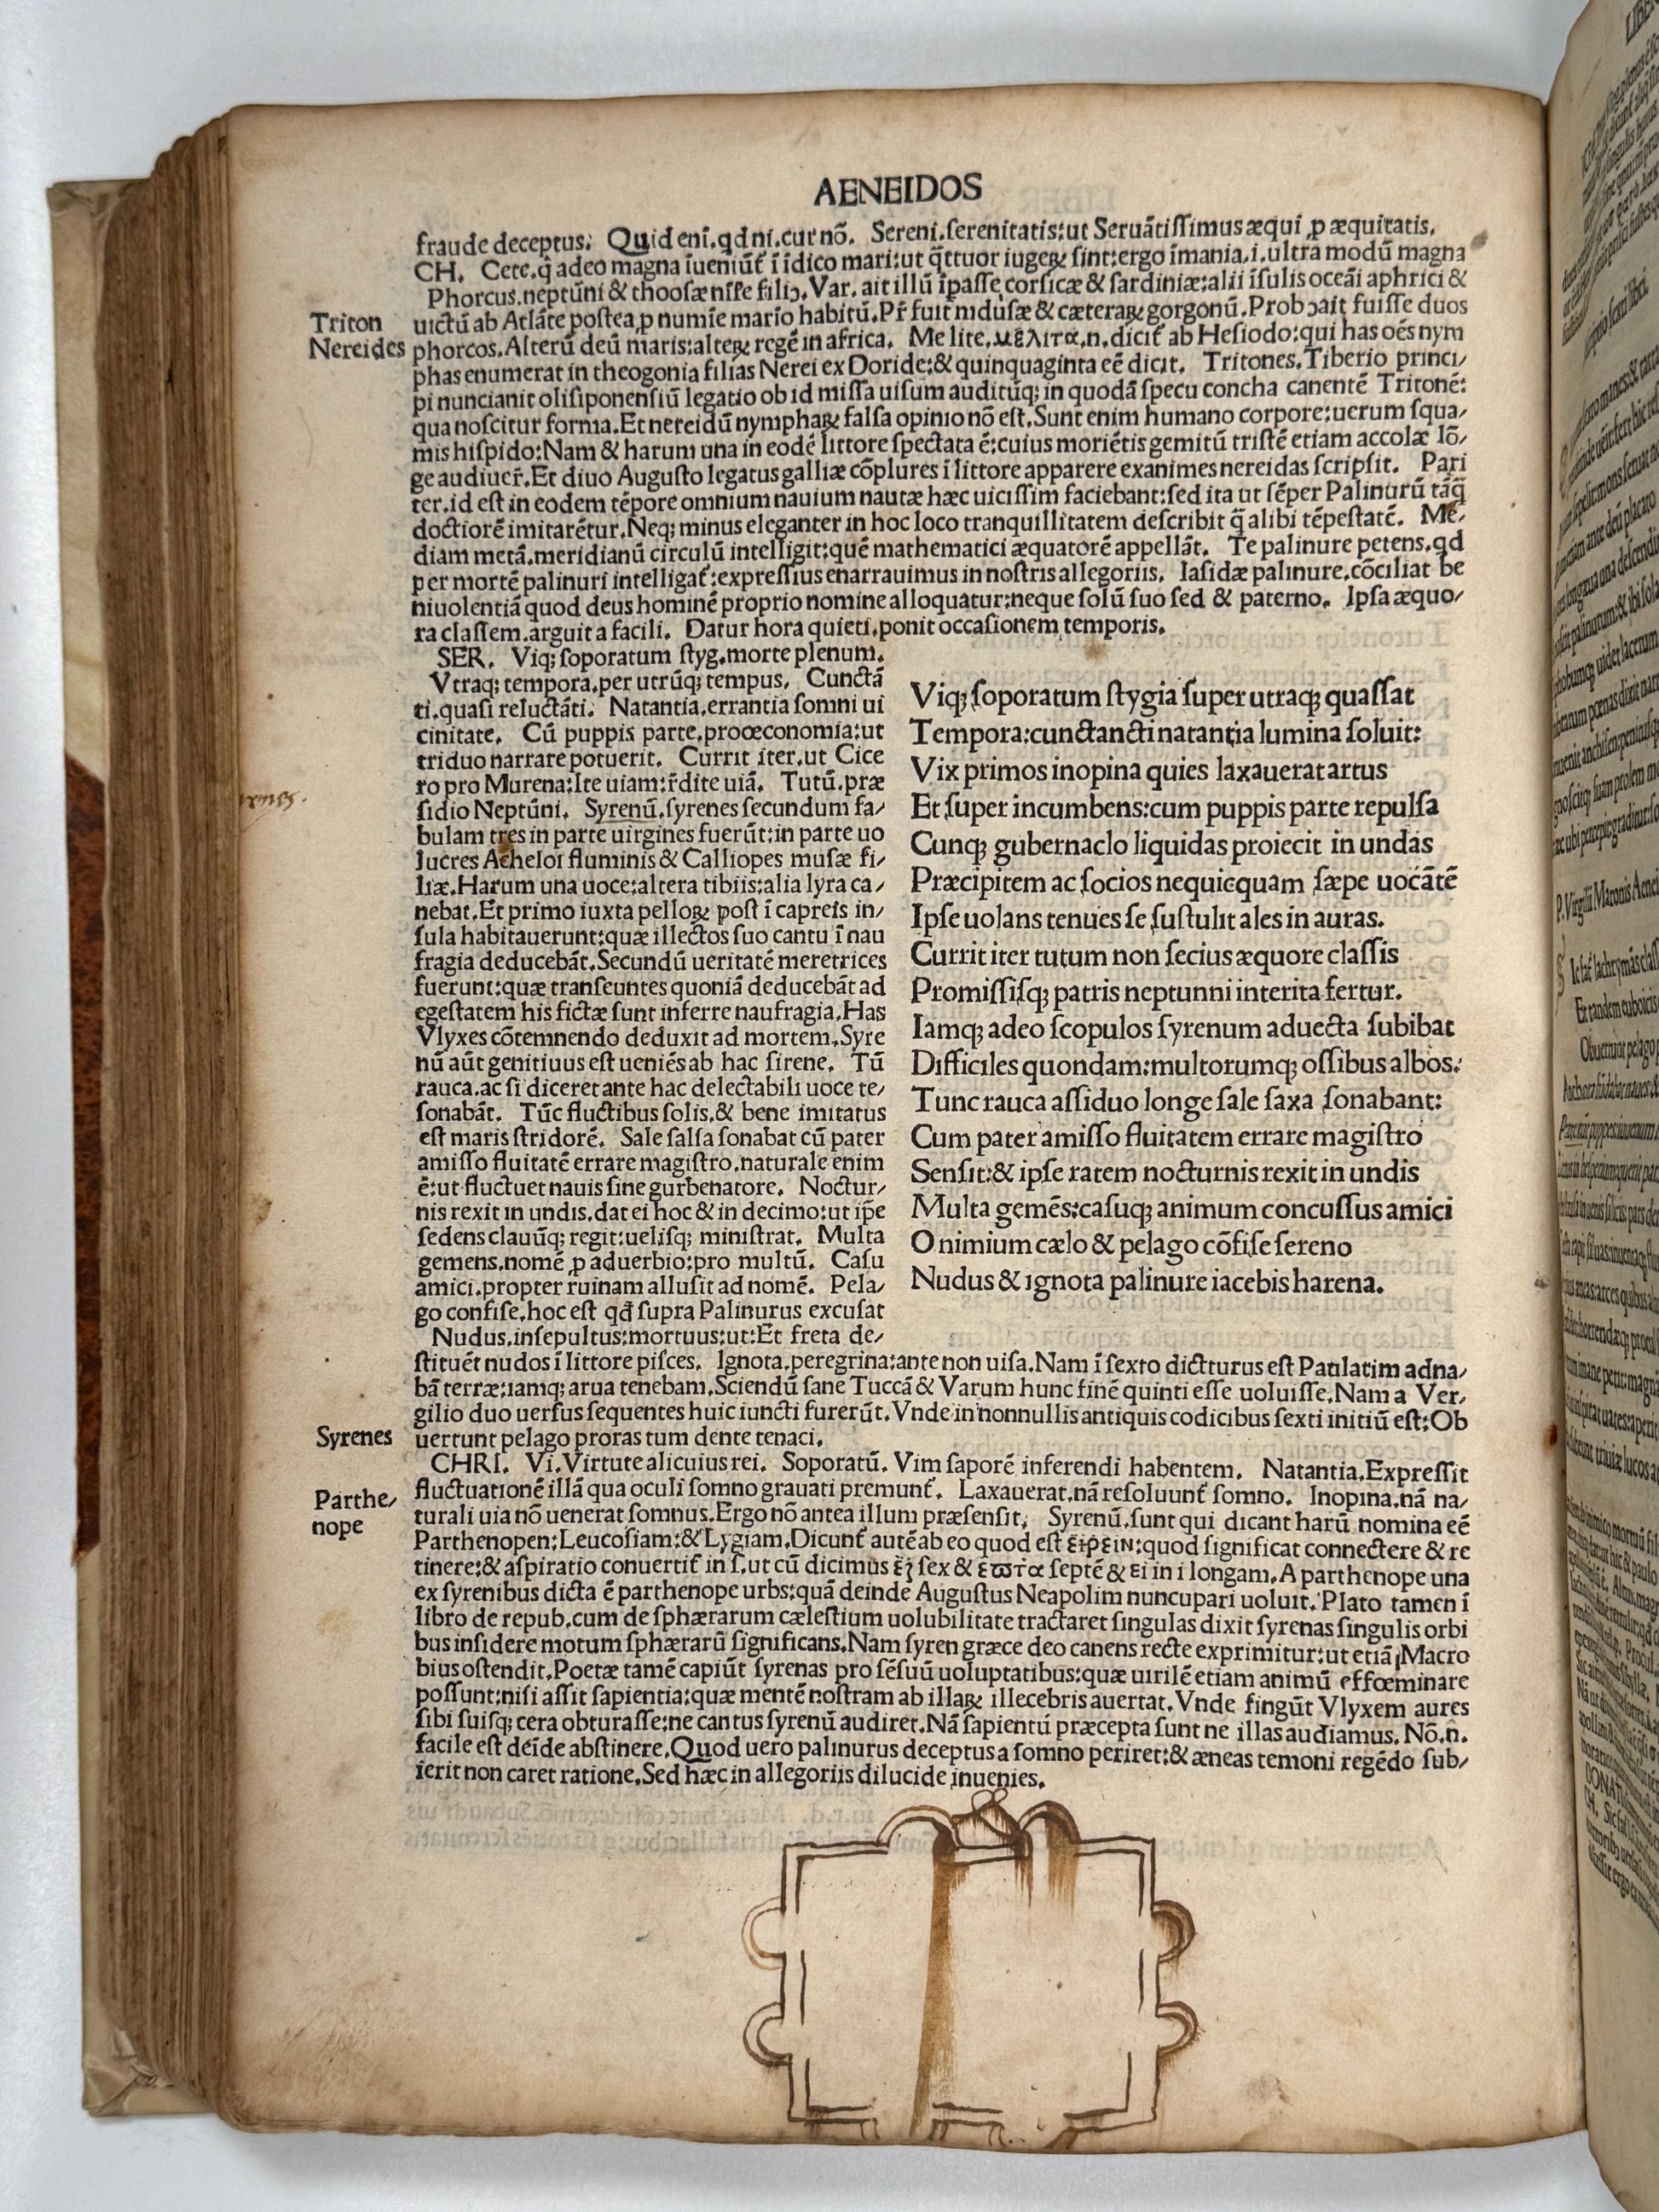 AENEIDOS
fraude deceptus. Quid enī.qd ni.cur nō. Sereni.serenitatis:ut Seruātissimus æqui ꝓ æquitatis.
CH. Cete.q̄ adeo magna īueniūt̄ ī īdico mari:ut q̄ttuor iugeꝝ sint:ergo īmania.i.ultra modū magna
Phorcus.neptūni & thoosæ nīfe filiꝰ. Var. ait illū īpasse corsicæ & sardiniæ:alii īsulis oceāi aphrici &
Triton
uictū ab Atlāte postea ꝓ numīe mario habitū.Pr̄ fuit mdusæ & cæteraꝝ gorgonū.Probꝰ ait fuisse duos
Nereides
phorcos.Alterū deū maris:alteꝝ regē in africa. Melite.μέλιτα.n.dicit̄ ab Hesiodo:qui has oēs nym
phas enumerat in theogonia filias Nerei ex Doride:& quinquaginta eē dicit. Tritones.Tiberio princi/
pi nuncianit olisiponensiū legatio ob id missa uisum auditūq; in quodā specu concha canentē Tritonē:
qua noscitur forma.Et nereidū nymphaꝝ falsa opinio nō est.Sunt enim humano corpore:uerum squa/
mis hispido:Nam & harum una in eodē littore spectata ē:cuius moriētis gemitū tristē etiam accolæ lō/
ge audiuer̄.Et diuo Augusto legatus galliæ cōplures ī littore apparere exanimes nereidas scripsit. Pari
ter.id est in eodem tēpore omnium nauium nautæ hæc uicissim faciebant:sed ita ut sēper Palinurū tāq̄
doctiorē imitarētur.Neq; minus eleganter in hoc loco tranquillitatem describit q̄ alibi tēpestatē. Me/
diam metā.meridianū circulū intelligit:quē mathematici æquatorē appellāt. Te palinure petens.qd
per mortē palinuri intelligat̄:expressius enarrauimus in nostris allegoriis. Iasidæ palinure.cōciliat be
niuolentiā quod deus hominē proprio nomine alloquatur:neque solū suo sed & paterno. Ipsa æquo/
ra classem.arguit a facili. Datur hora quieti.ponit occasionem temporis.
SER. Viq; soporatum styg.morte plenum.
Vtraq; tempora.per utrūq; tempus. Cunctā
ti.quasi reluctāti. Natantia.errantia somni ui
cinitate. Cū puppis parte.proœconomia:ut
triduo narrare potuerit. Currit iter.ut Cice
ro pro Murena:Ire uiam:r̄dite uiā. Tutū.præ
sidio Neptūni. Syrenū.syrenes secundum fa/
bulam tres in parte uirgines fuerūt:in parte uo
lucres Acheloi fluminis & Calliopes musæ fi/
liæ.Harum una uoce:altera tibiis:alia lyra ca/
nebat.Et primo iuxta pelloꝝ post ī capreis in/
sula habitauerunt:quæ illectos suo cantu ī nau
fragia deducebāt.Secundū ueritatē meretrices
fuerunt:quæ transeuntes quoniā deducebāt ad
egestatem his fictæ sunt inferre naufragia.Has
Vlyxes cōtemnendo deduxit ad mortem.Syre
nū aūt genitiuus est ueniēs ab hac sirene. Tū
rauca.ac si diceret ante hac delectabili uoce te/
sonabāt. Tūc fluctibus solis.& bene imitatus
est maris stridorē. Sale salsa sonabat cū pater
amisso fluitatē errare magistro.naturale enim
ē:ut fluctuet nauis sine gurbenatore. Noctur/
nis rexit in undis.dat ei hoc & in decimo:ut ip̄e
sedens clauūq; regit:uelisq; ministrat. Multa
gemens.nomē ꝓ aduerbio:pro multū. Casu
amici.propter ruinam allusit ad nomē. Pela/
go confise.hoc est qd̄ supra Palinurus excusat
Nudus.insepultus:mortuus:ut:Et freta de/
Viq; soporatum stygia super utraq; quassat
Tempora:cunctancti natantia lumina soluit:
Vix primos inopina quies laxauerat artus
Et super incumbens:cum puppis parte repulsa
Cunq; gubernaclo liquidas proiecit in undas
Præcipitem ac socios nequicquam sæpe uocātē
Ipse uolans tenues se sustulit ales in auras.
Currit iter tutum non secius æquore classis
Promissisq; patris neptunni interita fertur.
Iamq; adeo scopulos syrenum aduecta subibat
Difficiles quondam:multorumq; ossibus albos:
Tunc rauca assiduo longe sale saxa sonabant:
Cum pater amisso fluitatem errare magistro
Sensit:& ipse ratem nocturnis rexit in undis
Multa gemēs:casuq; animum concussus amici
O nimium cælo & pelago cōfise sereno
Nudus & ignota palinure iacebis harena.
stituēt nudos ī littore pisces. Ignota.peregrina:ante non uisa.Nam ī sexto dictturus est Paulatim adna/
bā terræ:iamq; arua tenebam.Sciendū sane Tuccā & Varum hunc finē quinti esse uoluisse.Nam a Ver/
gilio duo uersus sequentes huic iuncti furerūt.Vnde in nonnullis antiquis codicibus sexti initiū est:Ob
Syrenes
uertunt pelago proras tum dente tenaci.
CHRI. Vi.Virtute alicuius rei. Soporatū. Vim saporē inferendi habentem. Natantia.Expressit
fluctuationē illā qua oculi somno grauati premunt̄. Laxauerat.nā resoluunt̄ somno. Inopina.nā na/
Parthe/
nope
turali uia nō uenerat somnus.Ergo nō antea illum præsensit. Syrenū.sunt qui dicant harū nomina eē
Parthenopen:Leucosiam:& Lygiam.Dicunt̄ autē ab eo quod est ἔιρειν:quod significat connectere & re
tinere:& aspiratio conuertit̄ in s.ut cū dicimus ἔξ sex & ἑπτα septē & ει in i longam.A parthenope una
ex syrenibus dicta ē parthenope urbs:quā deinde Augustus Neapolim nuncupari uoluit. Plato tamen ī
libro de repub.cum de sphærarum cælestium uolubilitate tractaret singulas dixit syrenas singulis orbi
bus insidere motum sphærarū significans.Nam syren græce deo canens recte exprimitur:ut etiā Macro
bius ostendit.Poetæ tamē capiūt syrenas pro sēsuū uoluptatibus:quæ uirilē etiam animū effœminare
possunt:nisi assit sapientia:quæ mentē nostram ab illaꝝ illecebris auertat.Vnde fingūt Vlyxem aures
sibi suisq; cera obturasse:ne cantus syrenū audiret.Nā sapientū præcepta sunt ne illas audiamus. Nō.n.
facile est deīde abstinere.Quod uero palinurus deceptus a somno periret:& æneas temoni regēdo sub/
ierit non caret ratione.Sed hæc in allegoriis dilucide inuenies.